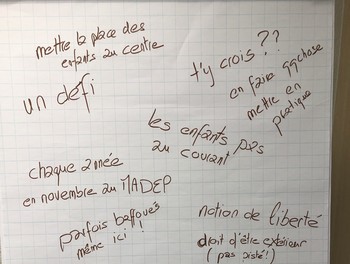 mettre la place des
enfants au centre
t'y crois ??
un défi
en faire qqchose
mettre en
pratique
les enfants pas
au courant
chaque année
en novembre au MADEP
parfois bafoués
même ici !
notion de liberté
droit d'être extérieur
(pas pisté !)